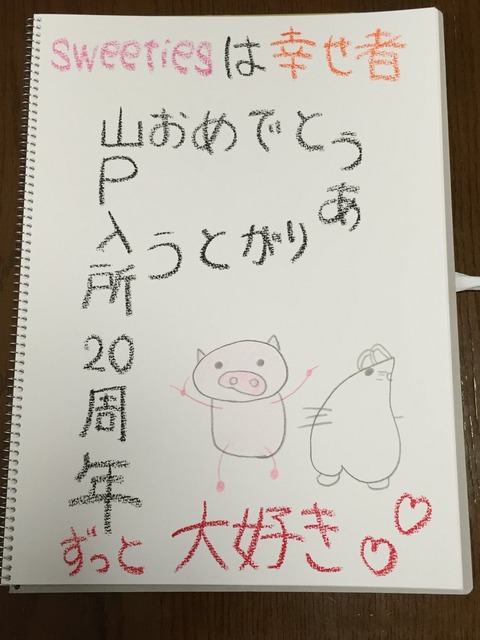 sweetiesは幸せ者
山P入所20周年
おめでとう
ありがとう
ずっと大好き♡♡